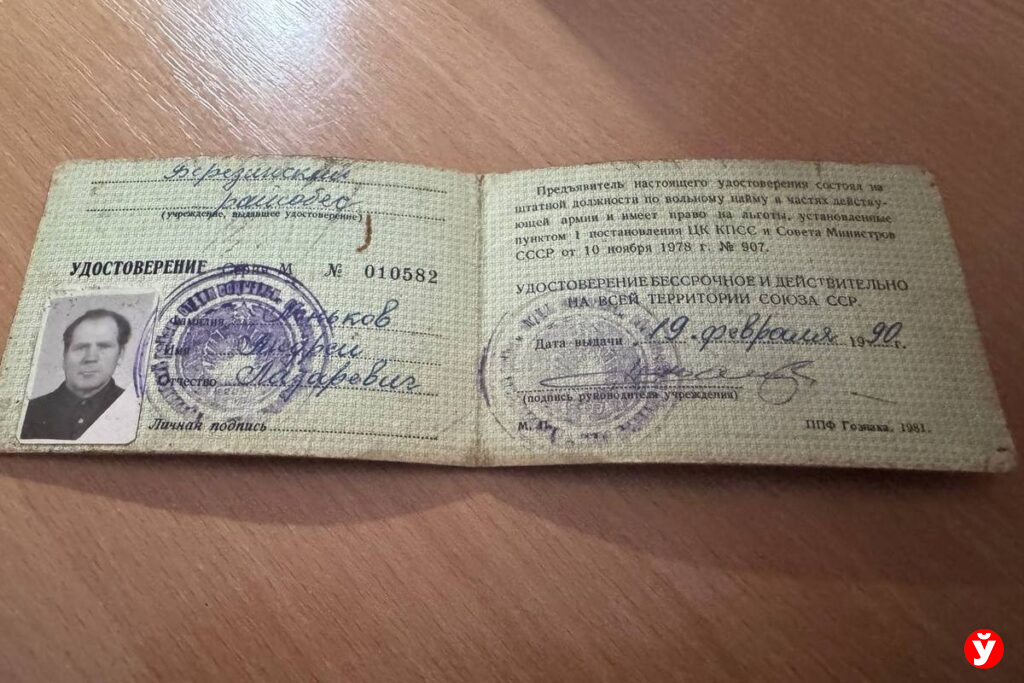 Березинский
райсобес
(учреждение, выдавшее удостоверение)
УДОСТОВЕРЕНИЕ Серия М № 010582
Фамилия
Имя Андрей
Отчество Лазаревич
Личная подпись
Предъявитель настоящего удостоверения состоял на
штатной должности по вольному найму в частях действу-
ющей армии и имеет право на льготы, установленные
пунктом 1 постановления ЦК КПСС и Совета Министров
СССР от 10 ноября 1978 г. № 907.
УДОСТОВЕРЕНИЕ БЕССРОЧНОЕ И ДЕЙСТВИТЕЛЬНО
НА ВСЕЙ ТЕРРИТОРИИ СОЮЗА ССР.
Дата выдачи 19 февраля 1990 г.
(подпись руководителя учреждения)
М. П. ППФ Гознака. 1981.
Ў